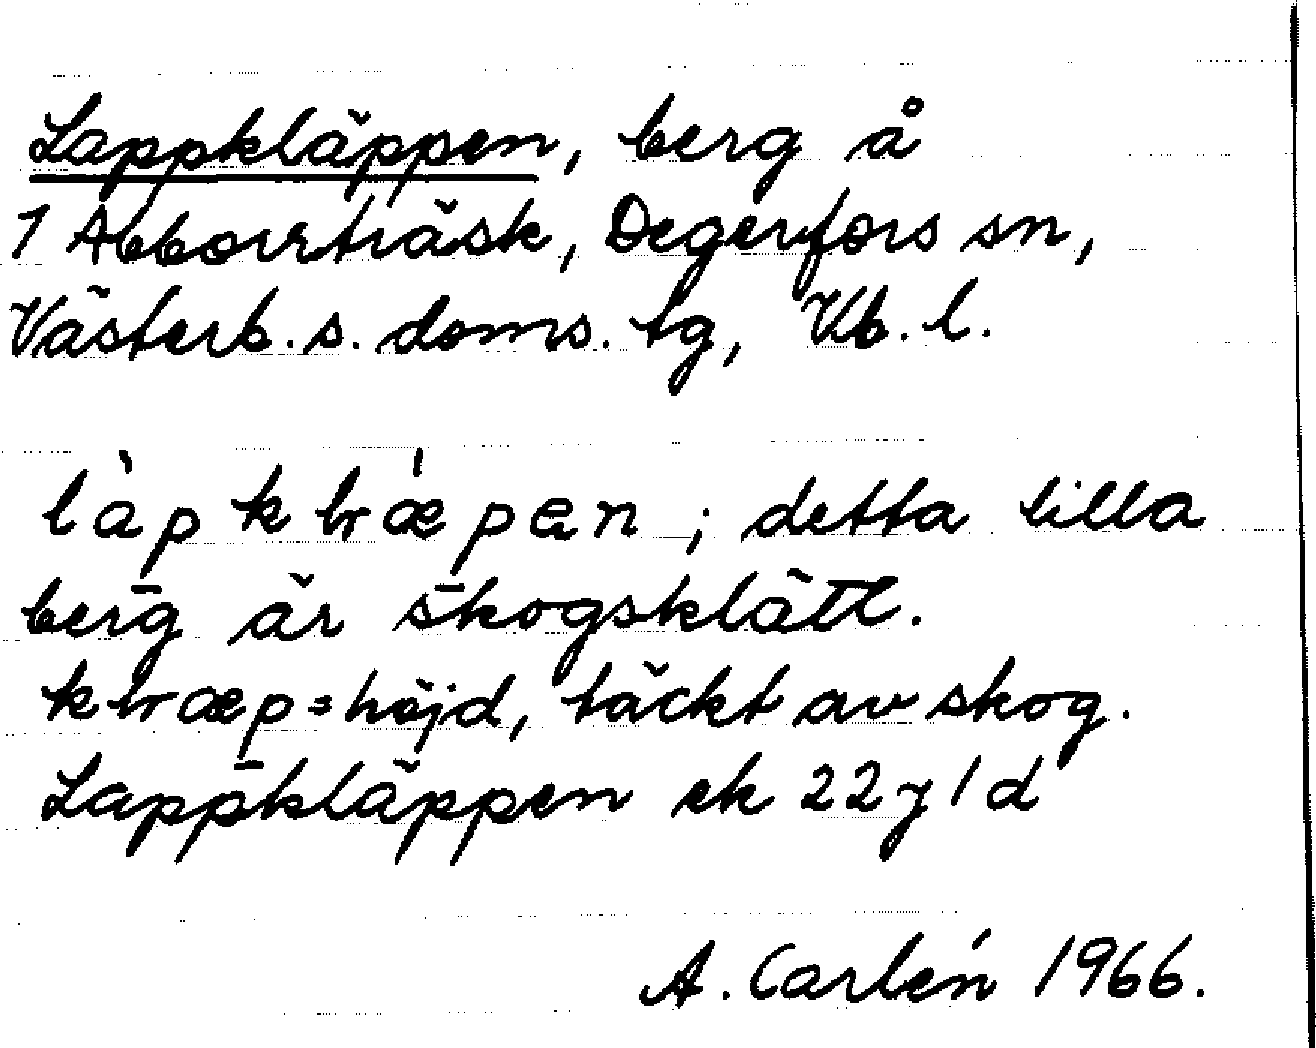 Lappkläppen, berg å
1 Abborrträsk, Degerfors sn,
Västerb. s. doms. tg, Vb. l.
làpkɫǽpen; detta lilla
berg är skogsklätt.
kɫæp=höjd, täckt av skog.
Lappkläppen ek 22 y 1 d
A. Carlén 1966.